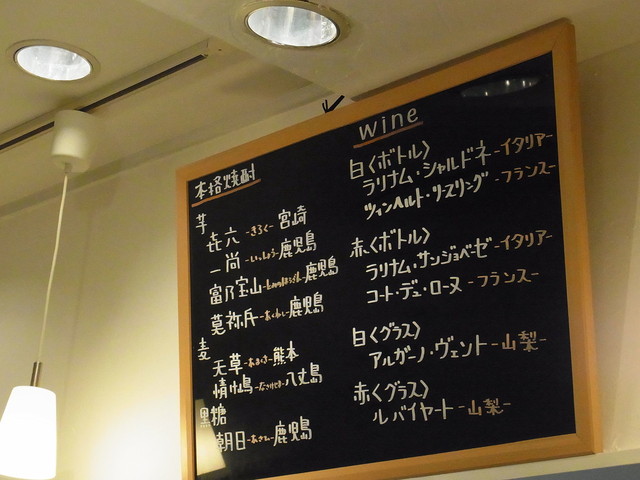 本格焼酎
芋
㐂六 -きろく- 宮崎
一尚 -いっしょう- 鹿児島
富乃宝山 -とみのほうざん- 鹿児島
莫祢氏 -あくねし- 鹿児島
麦
天草 -あまくさ- 熊本
情け嶋 -なさけじま- 八丈島
黒糖
朝日 -あさひ- 鹿児島
wine
白〈ボトル〉
ラリナム・シャルドネ -イタリア-
ツインヘルト・リースリング -フランス-
赤〈ボトル〉
ラリナム・サンジョベーゼ -イタリア-
コート・デュ・ローヌ -フランス-
白〈グラス〉
アルガーノ・ヴェント -山梨-
赤〈グラス〉
ルバイヤート -山梨-